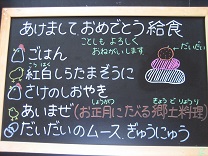 あけまして おめでとう 給食
ことしも よろしく
おねがいします
だいだい
ごはん
こうはく
紅白しらたまぞうに
さけのしおやき
しょうがつ きょうどりょうり
あいまぜ(お正月にたべる郷土料理)
だいだいのムース、ぎゅうにゅう